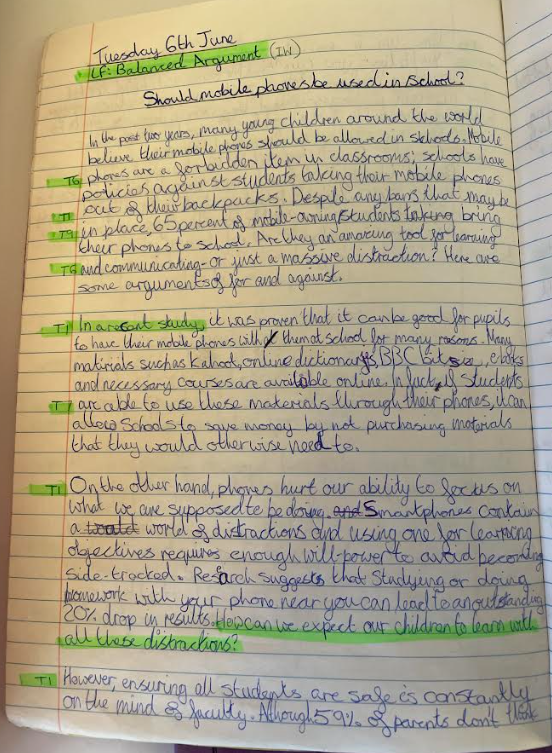 Tuesday 6th June
LF: Balanced Argument (IW)
Should mobile phones be used in school?
In the past two years, many young children around the world
believe their mobile phones should be allowed in skhools. Mobile
T6 phones are a forbidden item in classrooms; schools have
policies against students taking their mobile phones
T1 out of their backpacks. Despite any bans that may be
in place, 65 percent of mobile-owning students bring
their phones to school. Are they an amazing tool for learning
T6 and communicating - or just a massive distraction? Here are
some arguments for and against.
T1 In a recant study, it was proven that it can be good for pupils
to have their mobile phones with them at school for many reasons. Many
matirials such as Kahoot, online dictionarys, BBC bitsize, ebooks
and necessary courses are available online. In fact, if students
are able to use these materials through their phones, it can
allow schools to save money by not purchasing materials
that they would otherwise need to.
T1 On the other hand, phones hurt our ability to focus on
what we are supposed to be doing. and Smartphones contain
a world of distractions and using one for learning
objectives requires enough will-power to avoid becoming
side-tracked. Research suggests that studying or doing
homework with your phone near you can lead to an outstanding
20% drop in results. How can we expect our children to learn with
all these distractions?
T1 However, ensuring all students are safe is constantly
on the mind of faculty. Although 59% of parents don't think